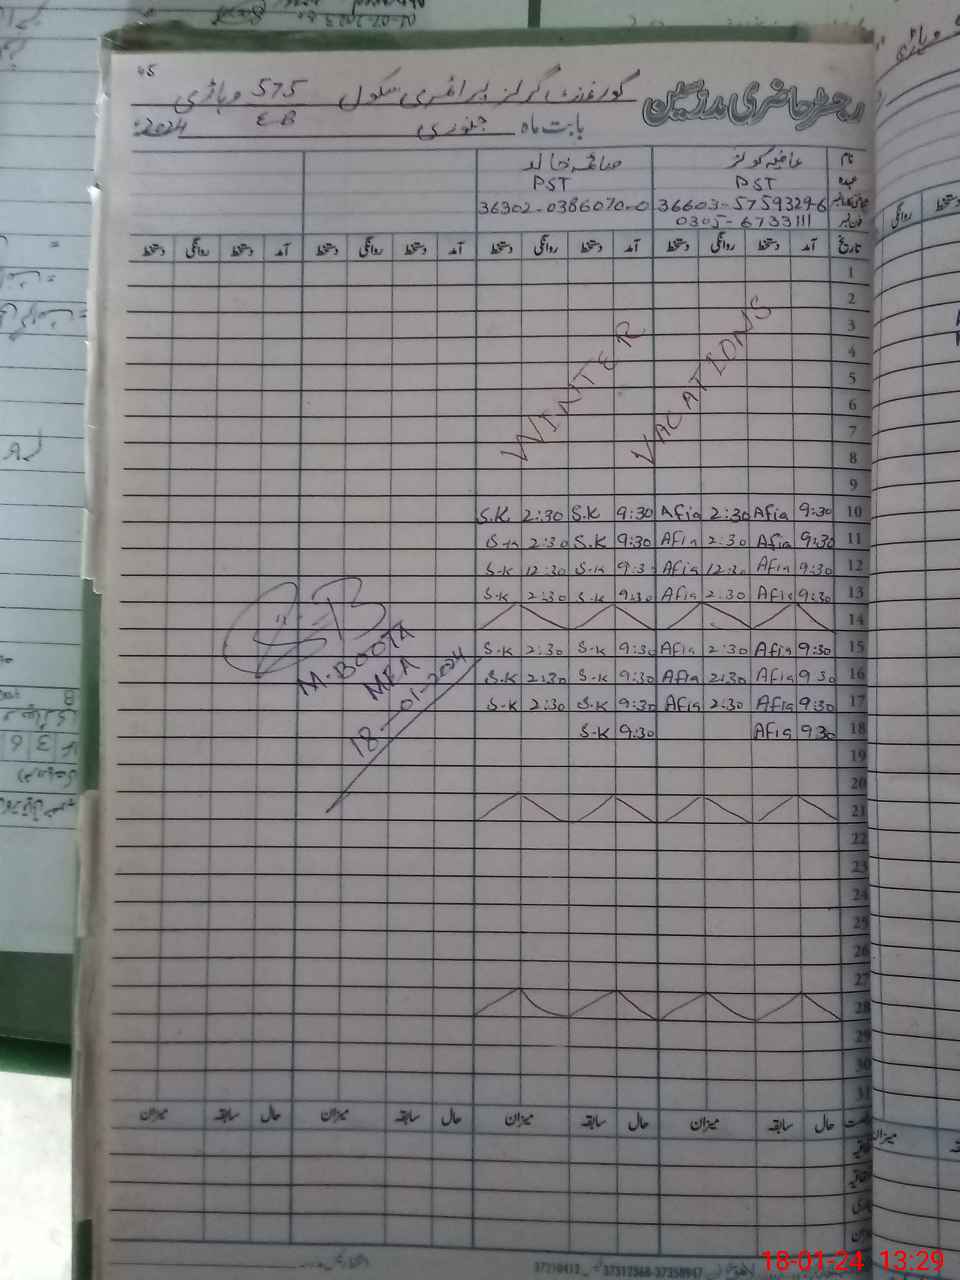 45
رجسٹر حاضری مدرسین گورنمنٹ گرلز پرائمری سکول 575 وہاڑی
E-B
بابت ماہ جنوری 2024ء
نام عافیہ کوثر صائمہ خالد
عہدہ PST PST
36603-5759329-6 36302-0386070-0
0305-6733111
تاریخ آمد دستخط روانگی دستخط آمد دستخط روانگی دستخط آمد دستخط روانگی دستخط آمد دستخط روانگی دستخط
1
2
3
4
5
6
7
8
9
WINTER VACATIONS
S.K 2:30 S.K 9:30 Afia 2:30 Afia 9:30 10
S.K 2:30 S.K 9:30 Afia 2:30 Afia 9:30 11
S-K 12:30 S-K 9:30 Afia 12:30 Afia 9:30 12
S-K 2:30 S-K 9:30 Afia 2:30 Afia 9:30 13
14
S-K 2:30 S-K 9:30 Afia 2:30 Afia 9:30 15
S.K 2:30 S-K 9:30 Afia 2:30 Afia 9:30 16
S-K 2:30 S-K 9:30 Afia 2:30 Afia 9:30 17
S-K 9:30 Afia 9:30 18
M.BOOTA
MEA
18-01-2024
19
20
21
22
23
24
25
26
27
28
29
30
31
حال سابقہ میزان حال سابقہ میزان حال سابقہ میزان حال سابقہ میزان
18-01-24 13:29